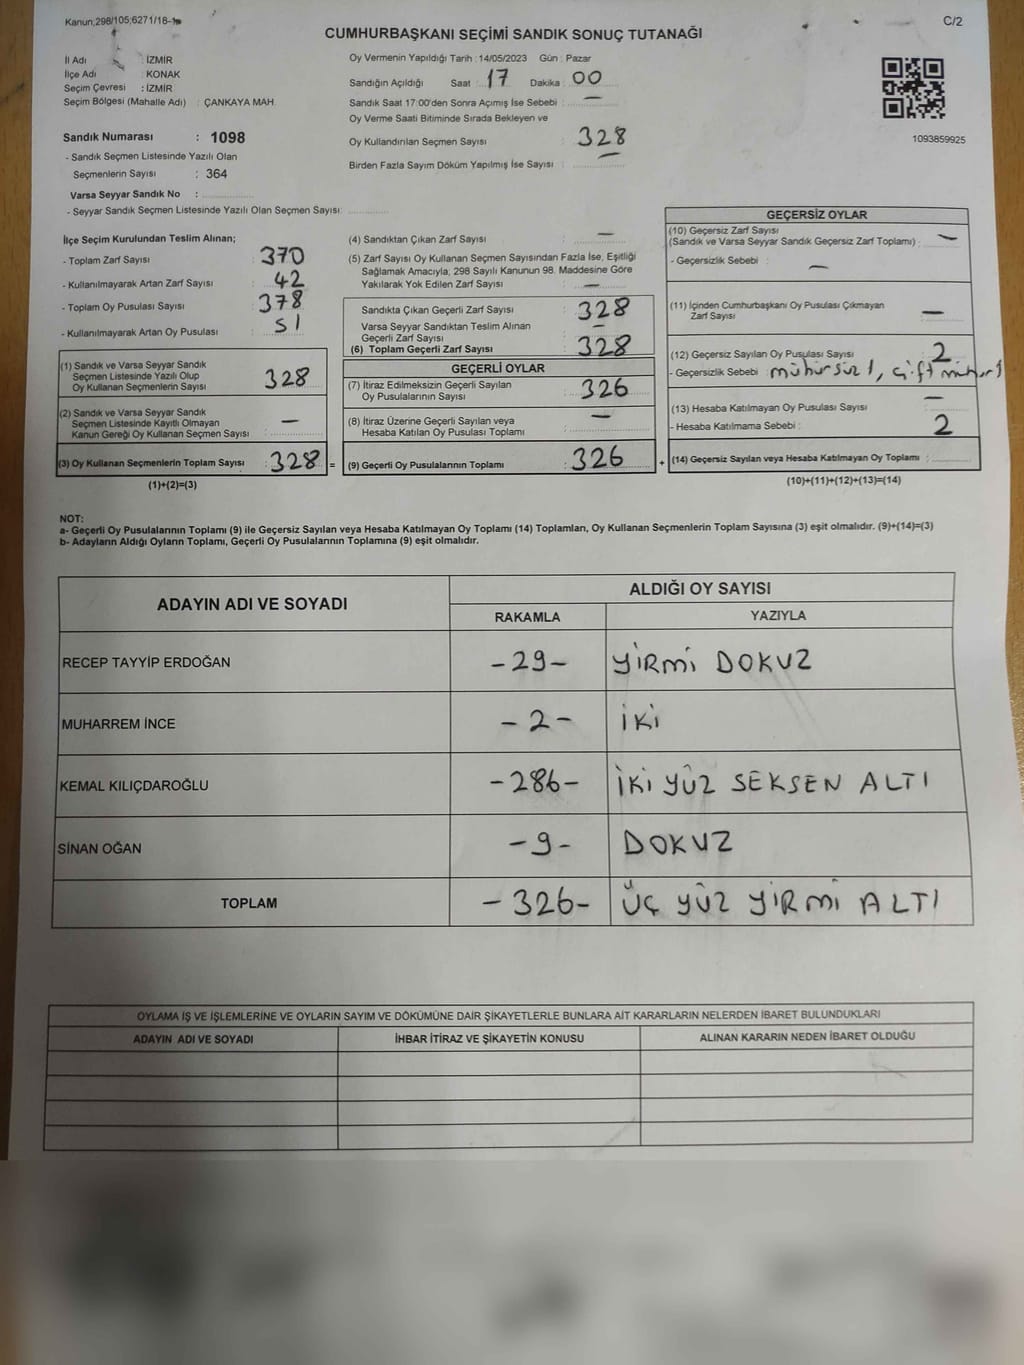 Kanun;298/105;6271/16-1
C/2
CUMHURBAŞKANI SEÇİMİ SANDIK SONUÇ TUTANAĞI
İl Adı : İZMİR
İlçe Adı : KONAK
Seçim Çevresi : İZMİR
Seçim Bölgesi (Mahalle Adı) : ÇANKAYA MAH.
Sandık Numarası : 1098
- Sandık Seçmen Listesinde Yazılı Olan
Seçmenlerin Sayısı : 364
Varsa Seyyar Sandık No :
- Seyyar Sandık Seçmen Listesinde Yazılı Olan Seçmen Sayısı:
Oy Vermenin Yapıldığı Tarih : 14/05/2023 Gün : Pazar
Sandığın Açıldığı Saat : 17 Dakika : 00
Sandık Saat 17:00'den Sonra Açımış İse Sebebi : —
Oy Verme Saati Bitiminde Sırada Bekleyen ve
Oy Kullandırılan Seçmen Sayısı : 328
Birden Fazla Sayım Döküm Yapılmış İse Sayısı : —
1093859925
İlçe Seçim Kurulundan Teslim Alınan;
- Toplam Zarf Sayısı : 370
- Kullanılmayarak Artan Zarf Sayısı : 42
- Toplam Oy Pusulası Sayısı : 378
- Kullanılmayarak Artan Oy Pusulası : 51
(1) Sandık ve Varsa Seyyar Sandık
Seçmen Listesinde Yazılı Olup
Oy Kullanan Seçmenlerin Sayısı : 328
(2) Sandık ve Varsa Seyyar Sandık
Seçmen Listesinde Kayıtlı Olmayan
Kanun Gereği Oy Kullanan Seçmen Sayısı : —
(3) Oy Kullanan Seçmenlerin Toplam Sayısı : 328 =
(1)+(2)=(3)
(4) Sandıktan Çıkan Zarf Sayısı : —
(5) Zarf Sayısı Oy Kullanan Seçmen Sayısından Fazla İse, Eşitliği
Sağlamak Amacıyla; 298 Sayılı Kanunun 98. Maddesine Göre
Yakılarak Yok Edilen Zarf Sayısı : —
Sandıkta Çıkan Geçerli Zarf Sayısı : 328
Varsa Seyyar Sandıktan Teslim Alınan
Geçerli Zarf Sayısı : —
(6) Toplam Geçerli Zarf Sayısı : 328
GEÇERLİ OYLAR
(7) İtiraz Edilmeksizin Geçerli Sayılan
Oy Pusulalarının Sayısı : 326
(8) İtiraz Üzerine Geçerli Sayılan veya
Hesaba Katılan Oy Pusulası Toplamı : —
(9) Geçerli Oy Pusulalarının Toplamı : 326 +
GEÇERSİZ OYLAR
(10) Geçersiz Zarf Sayısı
(Sandık ve Varsa Seyyar Sandık Geçersiz Zarf Toplamı) : —
- Geçersizlik Sebebi : —
(11) İçinden Cumhurbaşkanı Oy Pusulası Çıkmayan
Zarf Sayısı : —
(12) Geçersiz Sayılan Oy Pusulası Sayısı : 2
- Geçersizlik Sebebi : mühürsüz 1, çift mühür 1
(13) Hesaba Katılmayan Oy Pusulası Sayısı : —
- Hesaba Katılmama Sebebi :
(14) Geçersiz Sayılan veya Hesaba Katılmayan Oy Toplamı : 2
(10)+(11)+(12)+(13)=(14)
NOT:
a- Geçerli Oy Pusulalarının Toplamı (9) ile Geçersiz Sayılan veya Hesaba Katılmayan Oy Toplamı (14) Toplamları, Oy Kullanan Seçmenlerin Toplam Sayısına (3) eşit olmalıdır. (9)+(14)=(3)
b- Adayların Aldığı Oyların Toplamı, Geçerli Oy Pusulalarının Toplamına (9) eşit olmalıdır.
ADAYIN ADI VE SOYADI
ALDIĞI OY SAYISI
RAKAMLA YAZIYLA
RECEP TAYYİP ERDOĞAN -29- YİRMİ DOKUZ
MUHARREM İNCE -2- İKİ
KEMAL KILIÇDAROĞLU -286- İKİ YÜZ SEKSEN ALTI
SİNAN OĞAN -9- DOKUZ
TOPLAM -326- ÜÇ YÜZ YİRMİ ALTI
OYLAMA İŞ VE İŞLEMLERİNE VE OYLARIN SAYIM VE DÖKÜMÜNE DAİR ŞİKAYETLERLE BUNLARA AİT KARARLARIN NELERDEN İBARET BULUNDUKLARI
ADAYIN ADI VE SOYADI İHBAR İTİRAZ VE ŞİKAYETİN KONUSU ALINAN KARARIN NEDEN İBARET OLDUĞU